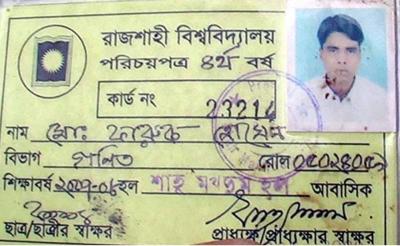 রাজশাহী বিশ্ববিদ্যালয়
পরিচয়পত্র ৪র্থ বর্ষ
কার্ড নং 23214
নাম মোঃ ফারুক হোসেন
বিভাগ গণিত রোল
শিক্ষাবর্ষ হল শাহ্ মখদুম হল আবাসিক
ছাত্র/ছাত্রীর স্বাক্ষর প্রাধ্যক্ষ/প্রাধ্যক্ষার স্বাক্ষর